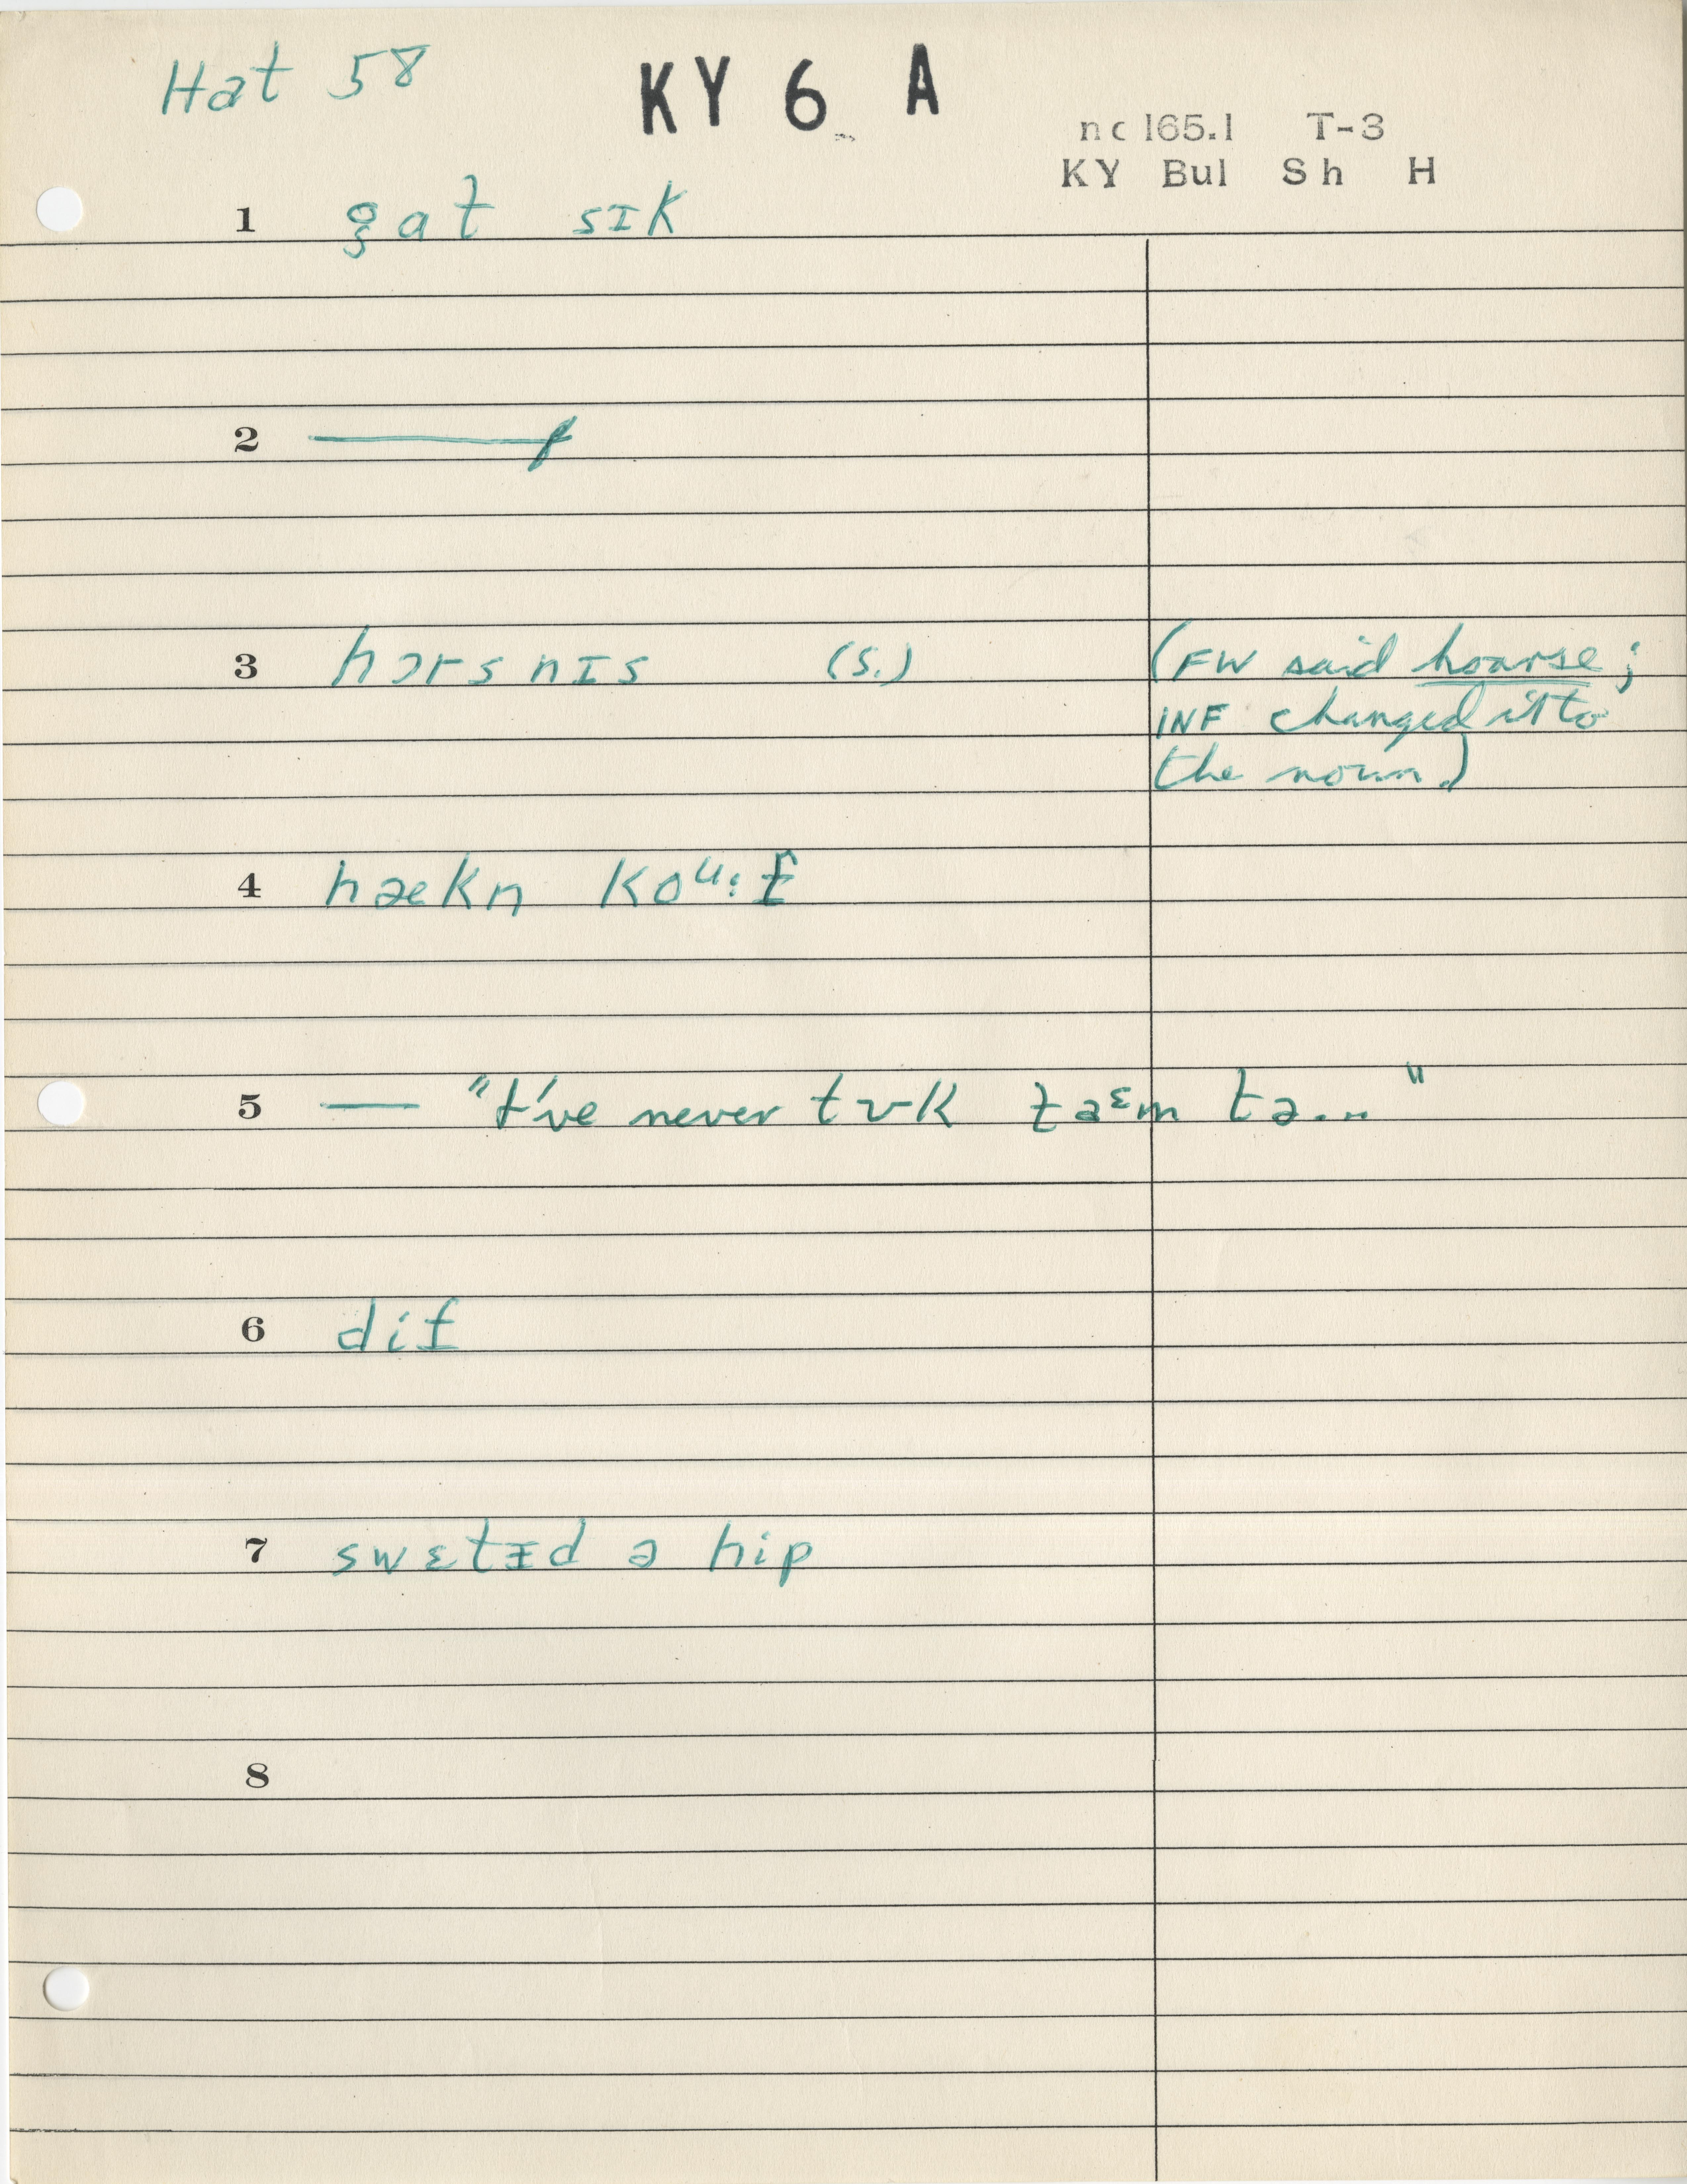 Hat 58 KY 6 A
nc 165.1 T-3
KY Bul Sh H
1 gat sɪk
2
3 hɔrsnɪs (s.) (FW said hoarse;
INF changed it to
the noun.)
4 hækn koᵘ:ɫ
5 — "I've never tʊk ta​ᵋm tə..."
6 dif
7 swɛtɪd ə hip
8